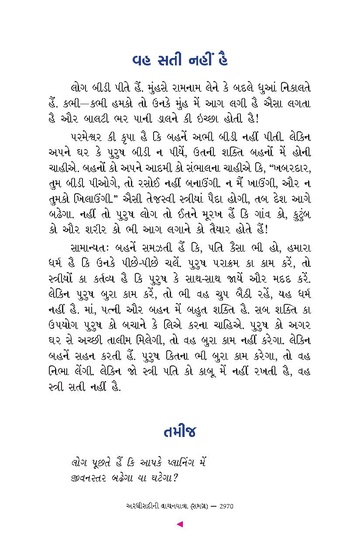 વહ સતી નહીં હૈ
લોગ બીડી પીતે હૈં. મુંહસે રામનામ લેને કે બદલે ધુઆં નિકાલતે
હૈં. કભી—કભી હમકો તો ઉનકે મુંહ મેં આગ લગી હૈ ઐસા લગતા
હૈ ઔર બાલટી ભર પાની ડાલને કી ઇચ્છા હોતી હૈ!
પરમેશ્વર કી કૃપા હૈ કિ બહનેં અભી બીડી નહીં પીતી. લેકિન
અપને ઘર કે પુરુષ બીડી ન પીયેં, ઉતની શક્તિ બહનોં મેં હોની
ચાહીએ. બહનોં કો અપને આદમી કો સંભાલના ચાહીએ કિ, "ખબરદાર,
તુમ બીડી પીઓગે, તો રસોઈ નહીં બનાઉંગી. ન મૈં ખાઉંગી, ઔર ન
તુમકો ખિલાઉંગી." ઐસી તેજસ્વી સ્ત્રીયાં પૈદા હોગી, તબ દેશ આગે
બઢેગા. નહીં તો પુરુષ લોગ તો ઈતને મૂરખ હૈં કિ ગાંવ કો, કુટુંબ
કો ઔર શરીર કો ભી આગ લગાને કો તૈયાર હોતે હૈં!
સામાન્યતઃ બહનેં સમઝતી હૈં કિ, પતિ કૈસા ભી હો, હમારા
ધર્મ હૈ કિ ઉનકે પીછે-પીછે ચલેં. પુરુષ પરાક્રમ કા કામ કરેં, તો
સ્ત્રીયોં કા કર્તવ્ય હૈ કિ પુરુષ કે સાથ-સાથ જાયેં ઔર મદદ કરેં.
લેકિન પુરુષ બુરા કામ કરેં, તો ભી વહ ચુપ બૈઠી રહેં, યહ ધર્મ
નહીં હૈ. માં, પત્ની ઔર બહન મેં બહુત શક્તિ હૈ. સબ શક્તિ કા
ઉપયોગ પુરુષ કો બચાને કે લિએ કરના ચાહિએ. પુરુષ કો અગર
ઘર સે અચ્છી તાલીમ મિલેગી, તો વહ બુરા કામ નહીં કરેગા. લેકિન
બહનેં સહન કરતી હૈં. પુરુષ કિતના ભી બુરા કામ કરેગા, તો વહ
નિભા લેંગી. લેકિન જો સ્ત્રી પતિ કો કાબૂ મેં નહીં રખતી હૈ, વહ
સ્ત્રી સતી નહીં હૈ.
તમીજ
લોગ પૂછતે હૈં કિ આપકે પ્લાનિંગ મેં
જીવનસ્તર બઢેગા યા ઘટેગા?
અરધીસદીની વાચનયાત્રા (સમગ્ર) — 2970